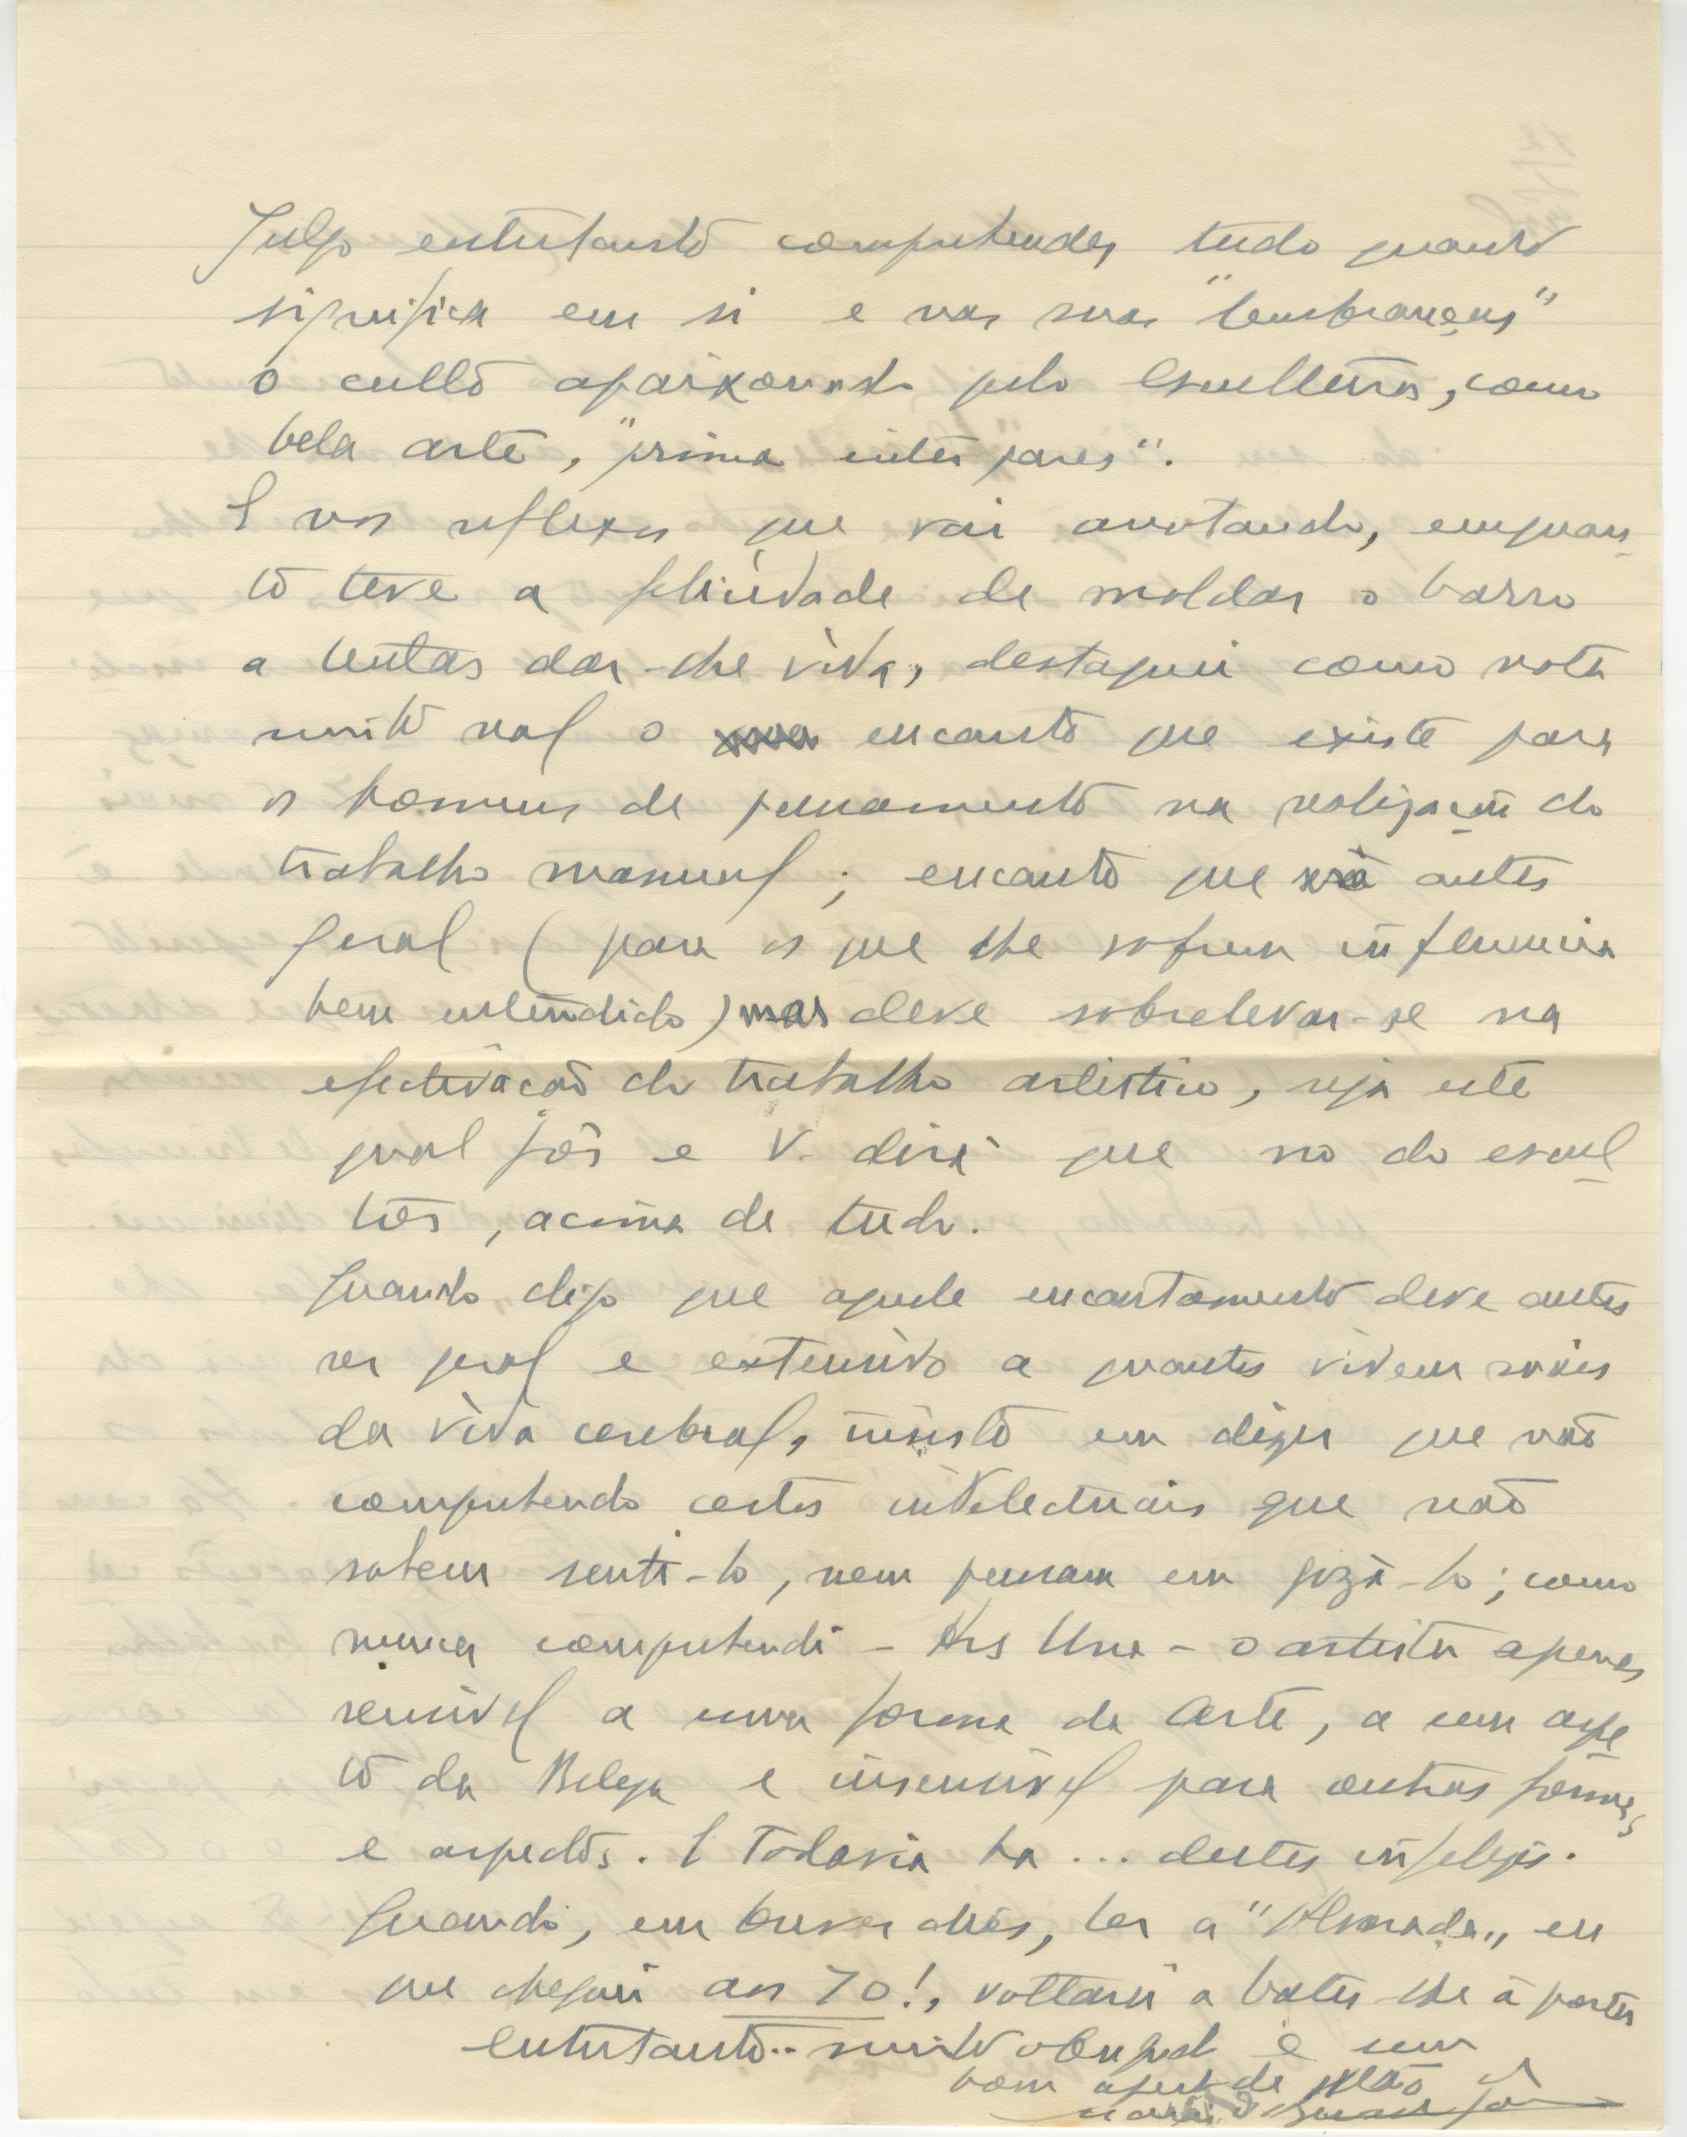 Julgo entretanto compreender tudo quanto
significa em si e nas suas "lembranças"
o culto apaixonado pela Escultura, como
bela arte, "prima inter pares".
E nos reflexos que vai anotando, emquan-
to teve a felicidade de moldar o barro
a tentar dar-lhe vida, destaquei como nota
muito real o encanto que existe para
os homens de pensamento na realização do
trabalho manual; encanto que é antes
geral (para os que lhe sofrem influencia
bem entendido) mas deve sobrelevar-se na
efectivação do trabalho artistico, seja este
qual fôr e V. dirá que no do escul-
tor, acima de tudo.
Quando digo que aquele encantamento deve antes
ser geral e extensivo a quantos vivem mais
da vida cerebral, insisto em dizer que não
compreendo certos intelectuais que não
sabem senti-lo, nem pensam em gozá-lo; como
nunca compreendi - Ars Una - o artista apenas
sensivel a uma forma da Arte, a um aspe-
to da Beleza e insensivel para outras formas
e aspectos. E todavia ha ... destes infelizes.
Quando, em breves dias, ler a "Almorada" em
que cheguei aos 70!, voltarei a bater-lhe á porta
Entretanto.. muito obrigado e um
bom aperto de mão